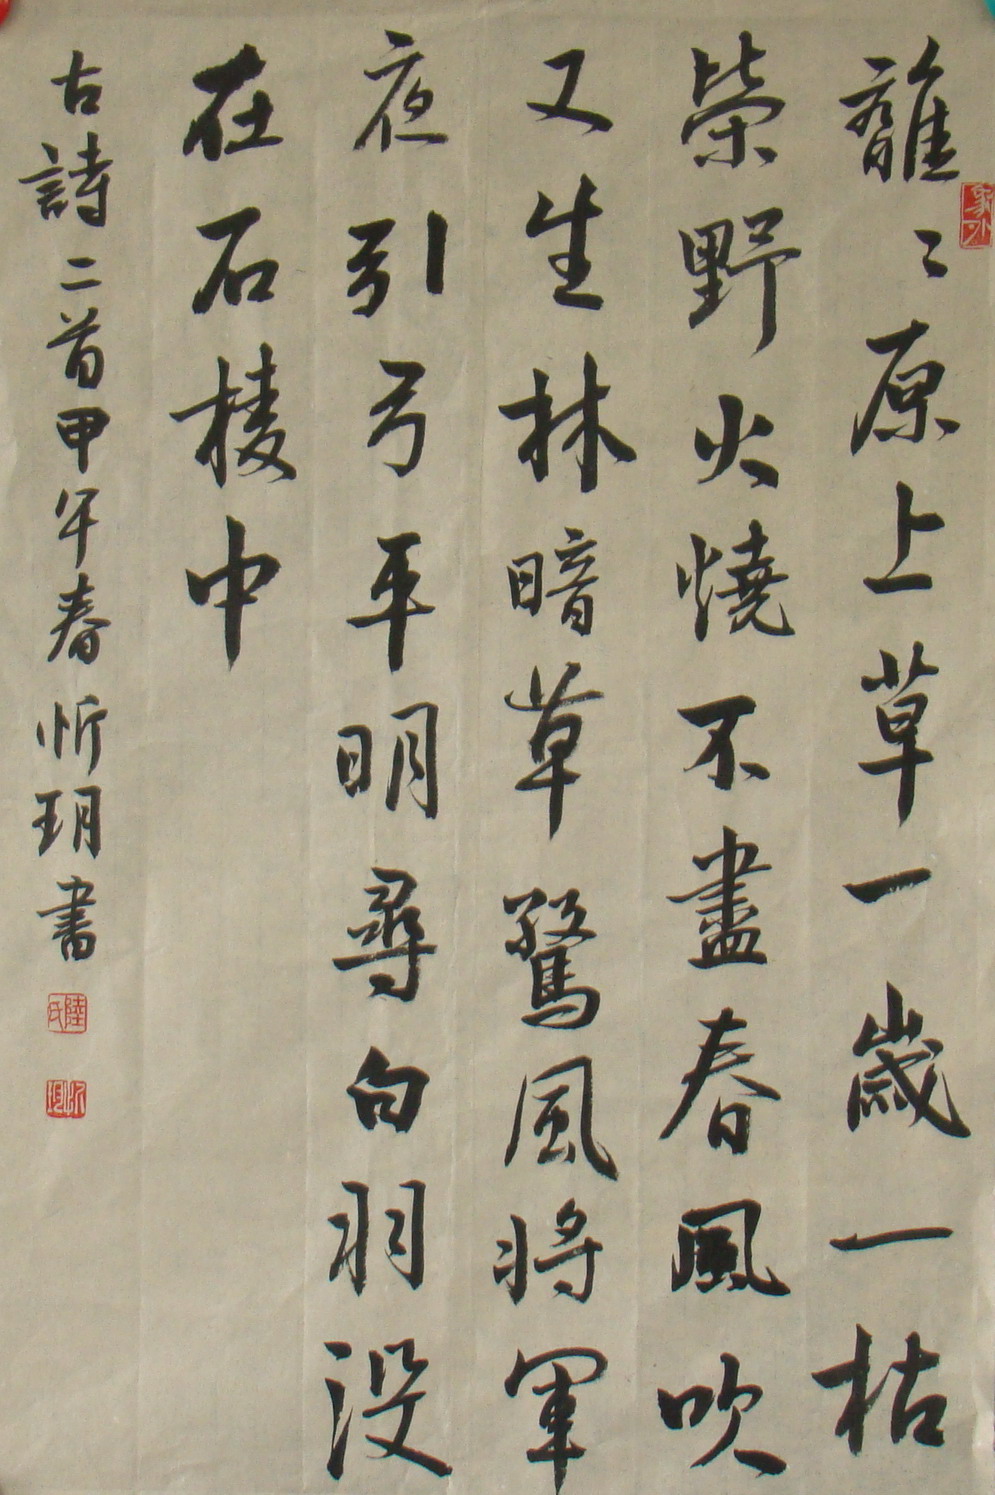 離〻原上草一歲一枯
榮野火燒不盡春風吹
又生林暗草驚風將軍
夜引弓平明尋白羽没
在石棱中
古詩二首甲午春忻玥書
陸氏
忻玥
象外